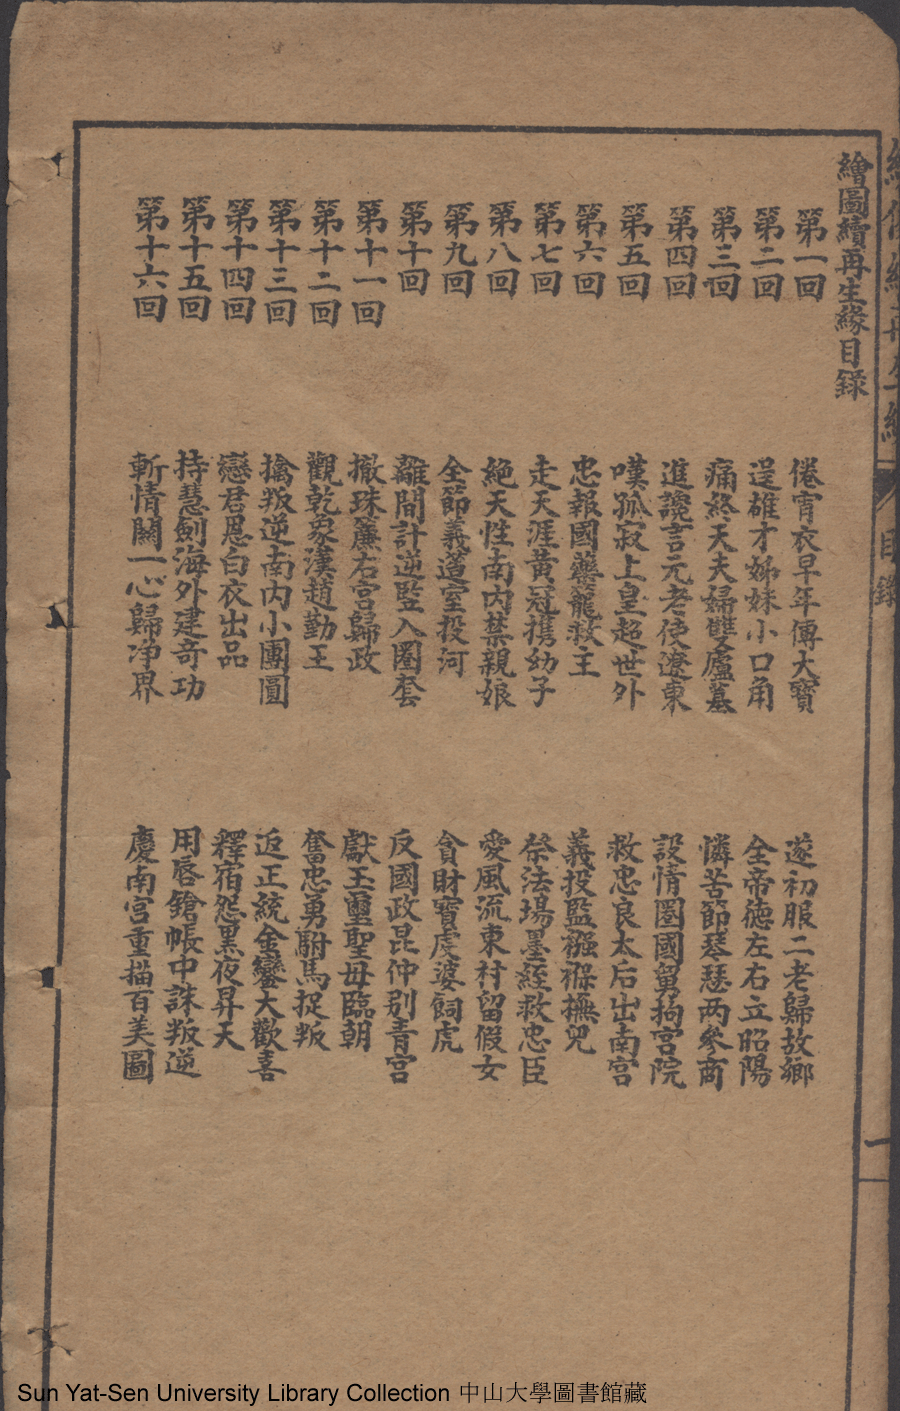 繪圖續再生緣目錄
第一回 倦宵衣早年傳大寶 遂初服二老歸故鄉
第二回 逞雄才姊妹小口角 全帝德左右立昭陽
第三回 痛終天夫婦雙廬墓 憐苦節琴瑟两參商
第四回 進讒言元老使遼東 設情圈國舅搗宮院
第五回 嘆孤寂上皇超世外 救忠良太后出南宮
第六回 忠報國藥籠救主 義投監襁褓撫兒
第七回 走天涯黃冠携幼子 祭法場墨絰救忠臣
第八回 絕天性南内禁親娘 愛風流東村留假女
第九回 全節義道室投河 貪財寶虔婆飼虎
第十回 離間計逆監入圈套 反國政昆仲别青宮
第十一回 撤珠簾右宮歸政 獻玉璽聖母臨朝
第十二回 觀乾象漢趙勤王 奮忠勇駙馬捉叛
第十三回 擒叛逆南内小團圓 返正統金鑾大歡喜
第十四回 戀君恩白衣出品 釋宿怨黑夜昇天
第十五回 持慧劍海外建奇功 用唇鎗帳中誅叛逆
第十六回 斬情關一心歸净界 慶南宮重描百美圖
目錄
一
Sun Yat-Sen University Library Collection 中山大學圖書館藏